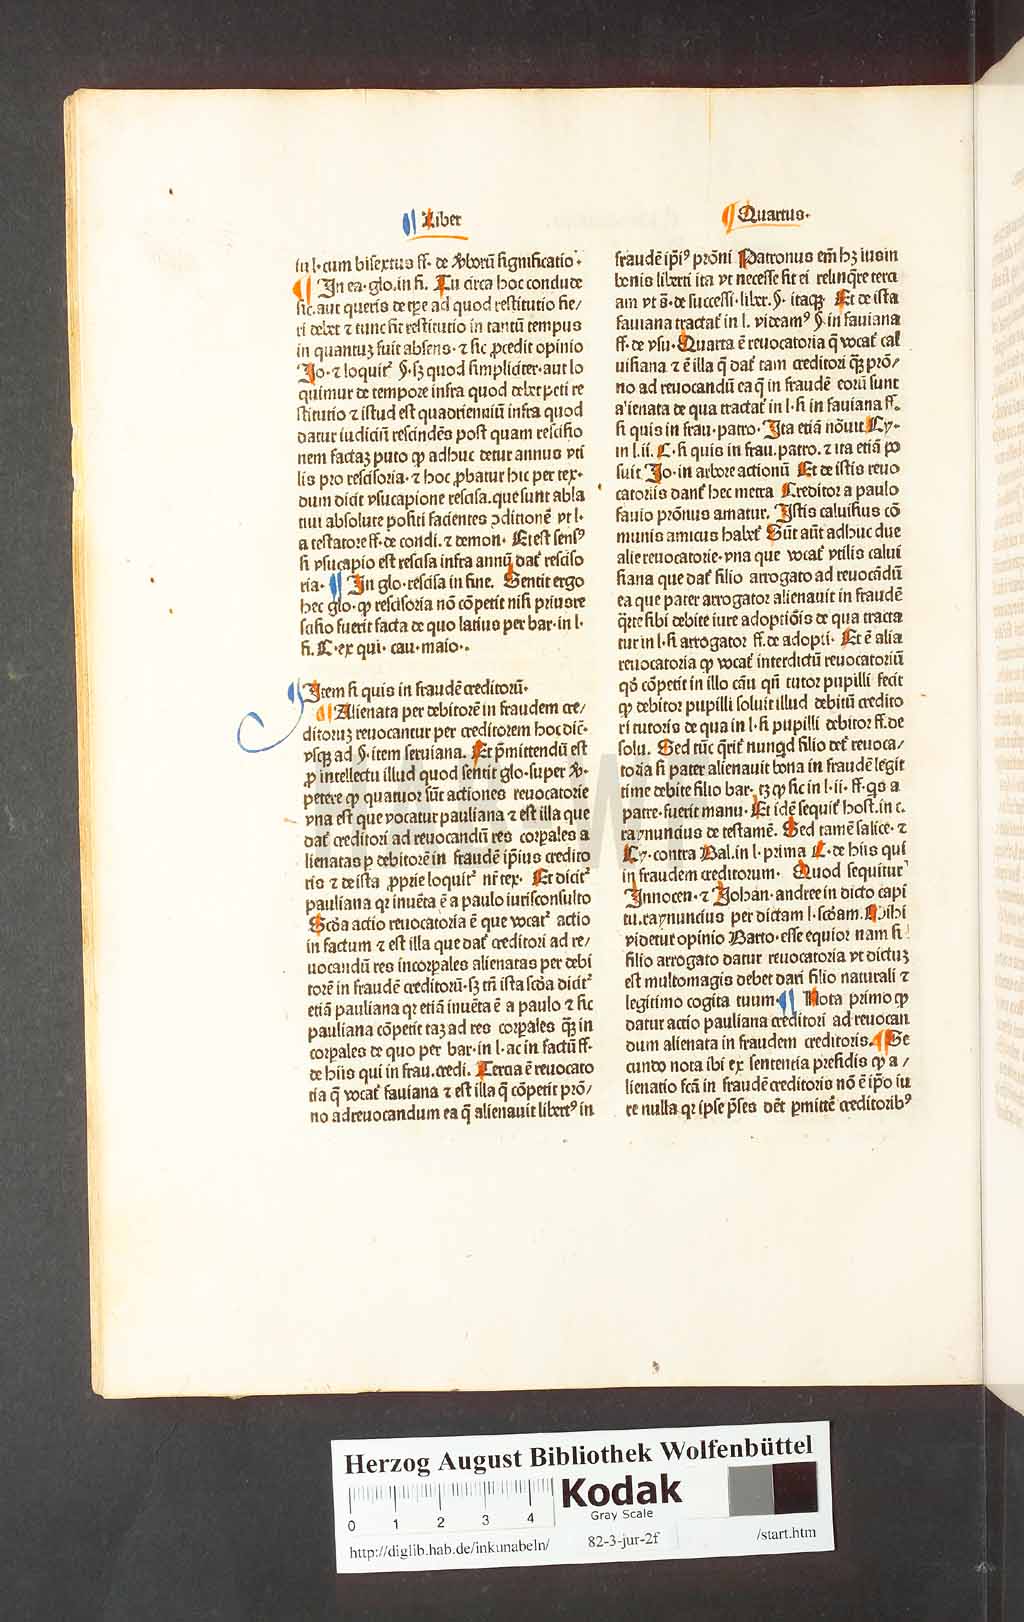 Liber
Quartus.
in l. cum bisextus ff. de v̾borū significatio.
¶ In ea. glo. in fi. Tu circa hoc conclude
sic. aut queris de tp̄e ad quod restitutio fie/
ri debet ⁊ tunc sit restitutio in tantū tempus
in quantuꝫ fuit absens. ⁊ sic ꝓcedit opinio
Jo. ⁊ loquit᷑ §. sꝫ quod simpliciter. aut lo
quimur de tempore infra quod debet peti re
stitutio ⁊ istud est quadrienniū infra quod
datur iudiciū rescindēs post quam rescisio
nem factaꝫ puto ꝙ adhuc detur annus vti
lis pro rescisoria. ⁊ hoc ꝓbatur hic per tex.
dum dicit vsucapione rescisa. que sunt abla
tiui absolute positi facientes ↄditionē vt l.
a testatore ff. de condi. ⁊ demon. Et est sensꝰ
si vsucapio est rescisa infra annū dat᷑ resciso
ria. ¶ In glo. rescisa in fine. Sentit ergo
hec glo. ꝙ rescisoria nō cōpetit nisi prius re
scisio fuerit facta de quo latius per bar. in l.
fi. C. ex qui. cau. maio..
Item si quis in fraudē creditorū.
¶ Alienata per debitorē in fraudem cre/
ditoruꝫ reuocantur per creditorem hoc dic̄.
vsqꝫ ad §. item seruiana. Et p̄mittendū est
ꝓ intellectu illud quod sentit glo. super v̾.
petere ꝙ quatuor sūt actiones reuocatorie
vna est que vocatur pauliana ⁊ est illa que
dat᷑ creditori ad reuocandū res corꝑales a
lienatas ꝑ debitorē in fraudē ip̄ius credito
ris ⁊ de ista ꝓprie loquit᷑ nr̄ tex. Et dicit᷑
pauliana qꝛ inuēta ē a paulo iurisconsulto
Scd̄a actio reuocatoria ē que vocat᷑ actio
in factum ⁊ est illa que dat᷑ creditori ad re/
uocandū res incorꝑales alienatas per debi
torē in fraudē creditorū. sꝫ tn̄ ista scd̄a dicit᷑
etiā pauliana qꝛ etiā inuēta ē a paulo ⁊ sic
pauliana cōpetit taꝫ ad res corꝑales qꝫ̄ in
corpales de quo per bar. in l. ac in factū ff.
de hiis qui in frau. credi. Tercia ē reuocato
ria q̄ vocat᷑ fauiana ⁊ est illa q̄ cōpetit prō/
no ad reuocandum ea q̄ alienauit libertꝰ in
fraudē ip̄iꝰ prōni Patronus em̄ hꝫ ius in
bonis liberti ita vt necesse sit ei relinq̄re terci
am vt s̄. de successi. liber. §. itaqꝫ Et de ista
fauiana tractat᷑ in l. videamꝰ §. in fauiana
ff. de vsu. Quarta ē reuocatoria q̄ vocat᷑ cal
uisiana ⁊ ē illa q̄ dat᷑ tam creditori qꝫ̄ prō/
no ad reuocandū ea q̄ in fraudē eorū sunt
alienata de qua tractat᷑ in l. si in fauiana ff.
si quis in frau. patro. Ita etiā nōuit Cy.
in l. ii. C. si quis in frau. patro. ⁊ ita etiā po
suit Jo. in arbore actionū Et de istis reuo
catoriis dant᷑ hec metra Creditor a paulo
fauio prōnus amatur. Istis caluisius cō
munis amicus habet᷑ Sūt aūt adhuc due
alie reuocatorie. vna que vocat᷑ vtilis calui
siana que dat᷑ filio arrogato ad reuocādū
ea que pater arrogator alienauit in fraudē
q̄rte sibi debite iure adoptiōis de qua tracta
tur in l. si arrogator ff. de adopti. Et ē alia
reuocatoria ꝙ vocat᷑ interdictū reuocatoriū
qd̄ cōpetit in illo cāu qn̄ tutor pupilli fecit
ꝙ debitor pupilli soluit illud debitū credito
ri tutoris de qua in l. si pupilli debitor ff. de
solu. Sed tūc q̄rit᷑ nunqd filio det᷑ reuoca/
toria si pater alienauit bona in fraudē legit
time debite filio bar. tꝫ ꝙ sic in l. ii. ff. qs a
patre. fuerit manu. Et idē sequit᷑ host. in c.
raynuncius de testamē. Sed tamē salice. ⁊
Cy. contra Bal. in l. prima C. de hiis qui
in fraudem creditorum. Quod sequitur
Innocen. ⁊ Johan. andree in dicto capi
tu. raynuncius per dictam l. scd̄am. Mihi
videtur opinio Barto. esse equior nam si
filio arrogato datur reuocatoria vt dictuꝫ
est multomagis debet dari filio naturali ⁊
legitimo cogita tuum. ¶ Nota primo ꝙ
datur actio pauliana creditori ad reuocan
dum alienata in fraudem creditoris. ¶ Se
cundo nota ibi ex sententia presidis ꝙ a /
lienatio fcā in fraudē creditoris nō ē ip̄o iu
re nulla qꝛ ipse p̄ses dēt ꝑmitte᷑ creditoribꝰ
HAB WF
Herzog August Bibliothek Wolfenbüttel
0 1 2 3 4
Kodak
Gray Scale
http://diglib.hab.de/inkunabeln/ 82-3-jur-2f /start.htm